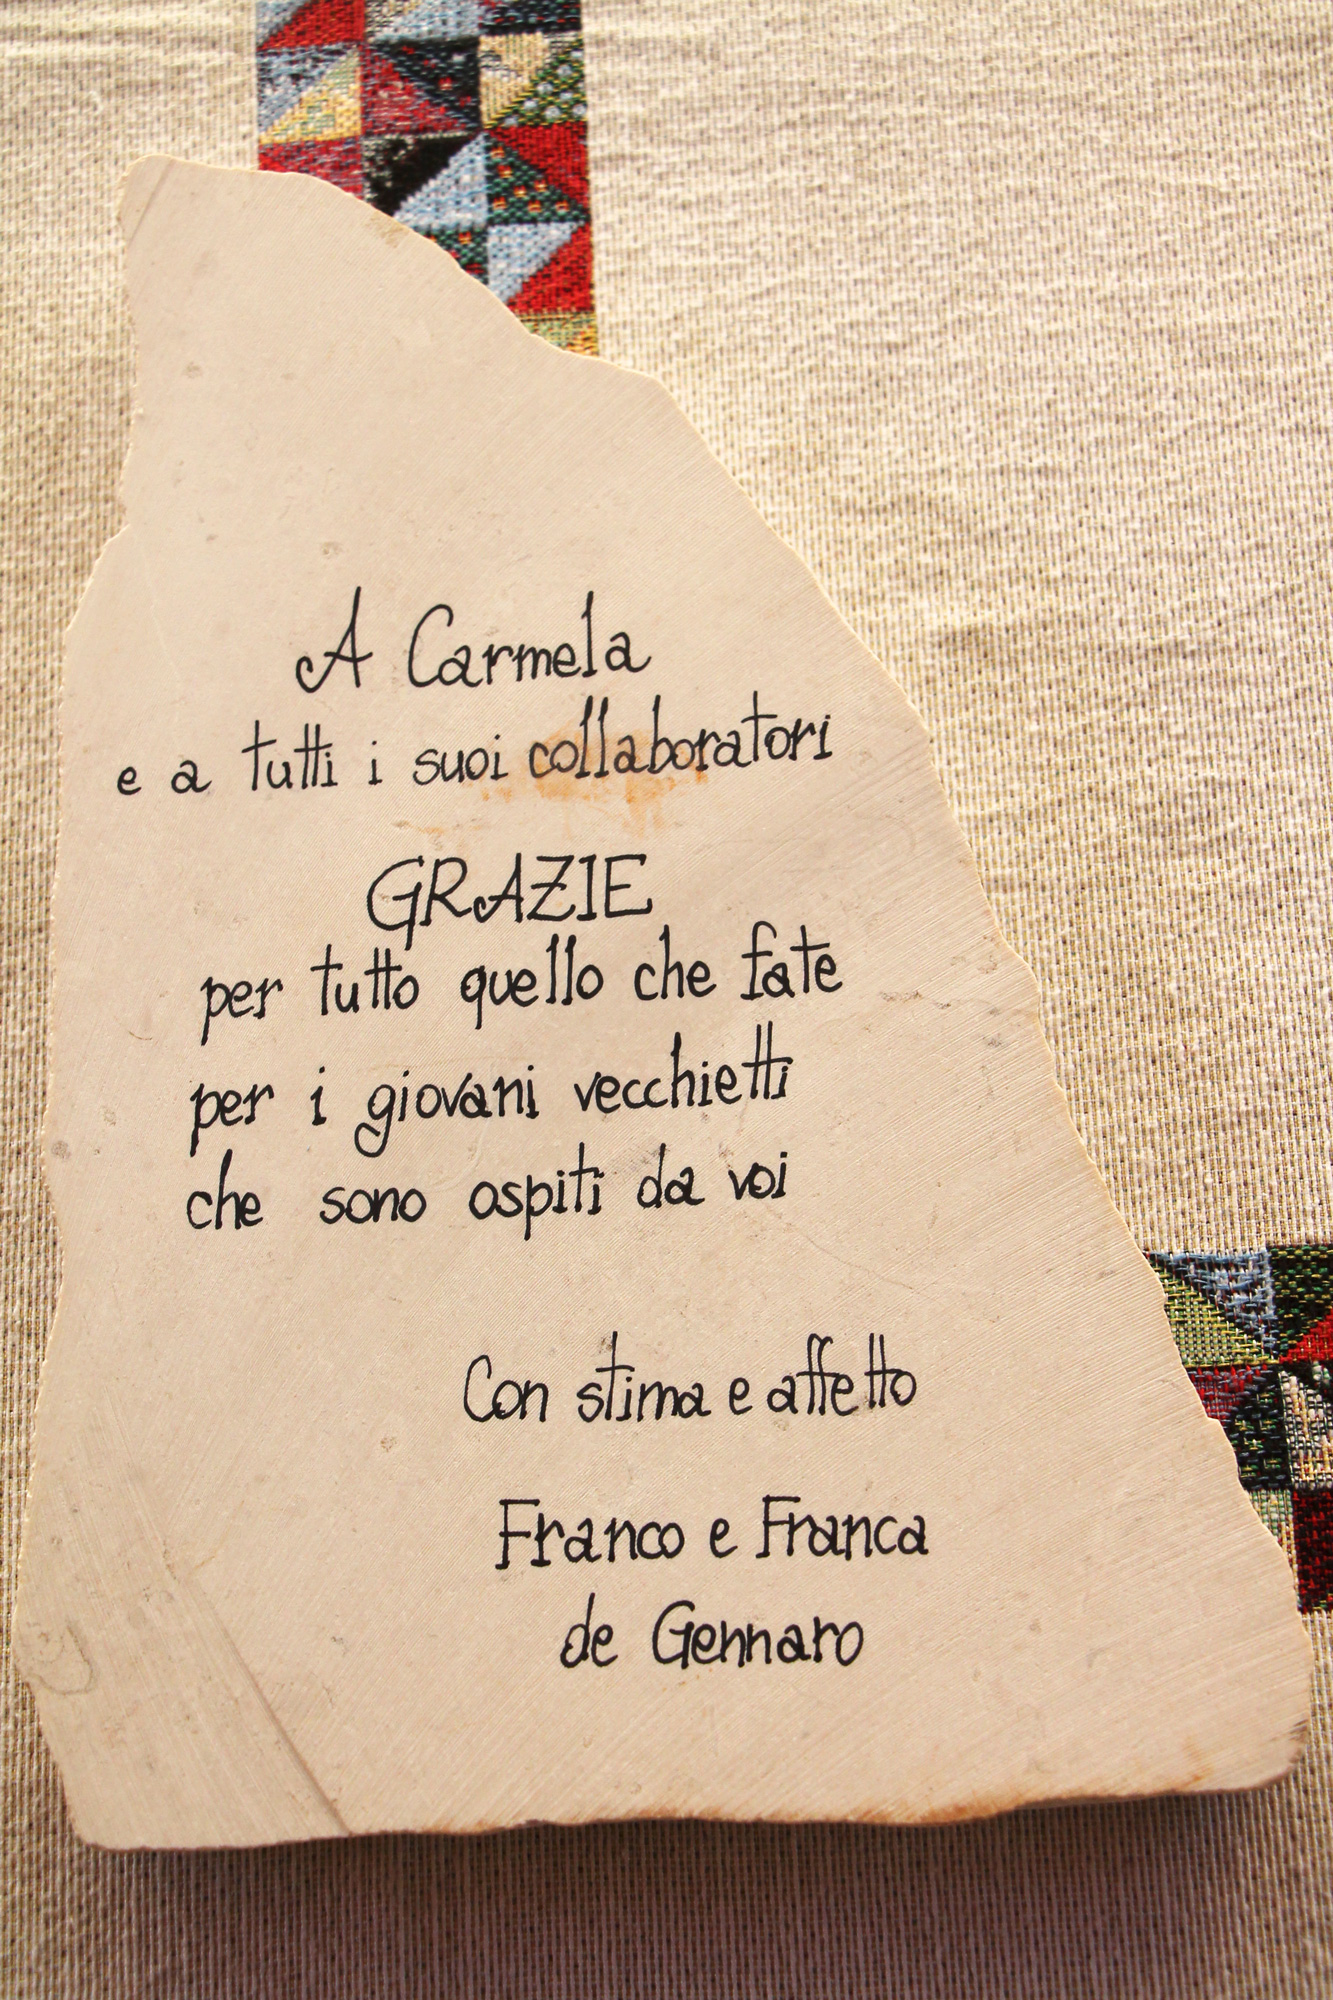 A Carmela
e a tutti i suoi collaboratori
GRAZIE
per tutto quello che fate
per i giovani vecchietti
che sono ospiti da voi
Con stima e affetto
Franco e Franca
de Gennaro